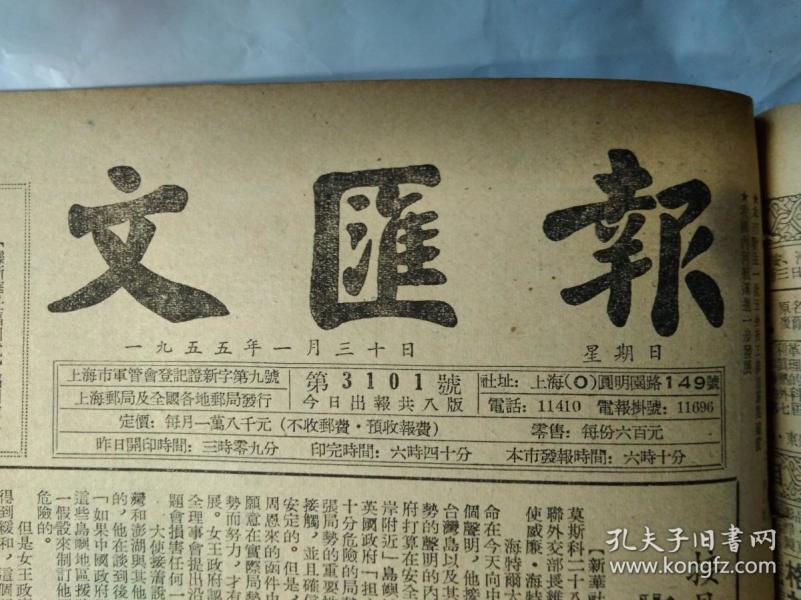 文匯報
一九五五年一月三十日
星期日
上海市軍管會登記證新字第九號
上海郵局及全國各地郵局發行
第3101號
今日出報共八版
社址：上海(0)圓明園路149號
電話：11410 電報掛號：11696
定價：每月一萬八千元（不收郵費·預收報費）
零售：每份六百元
昨日開印時間：三時零九分
印完時間：六時四十分
本市發報時間：六時十分
【新華社
莫斯科二十八
聯外交部長維
使威廉·海特
海特爾大
命在今天向中
個聲明，他接
台灣島以及其
勢的聲明的內
府打算在安全
岸附近」島嶼
英國政府「担
十分危險的局
張局勢的重要
接觸，並且確信
安定的。但是，
周恩來的函件中
願意在實際局勢
勢而努力，才有
展。女王政府認
全理事會提出沿
題會損害任何一
大使接着說
灣和澎湖與其他
的，他在談到後
「如果中國政府
這些島嶼地區援
一假設來制訂他
危險的。
但是女王政
得到緩和，這個
孔夫子旧书网
www.kongfz.com